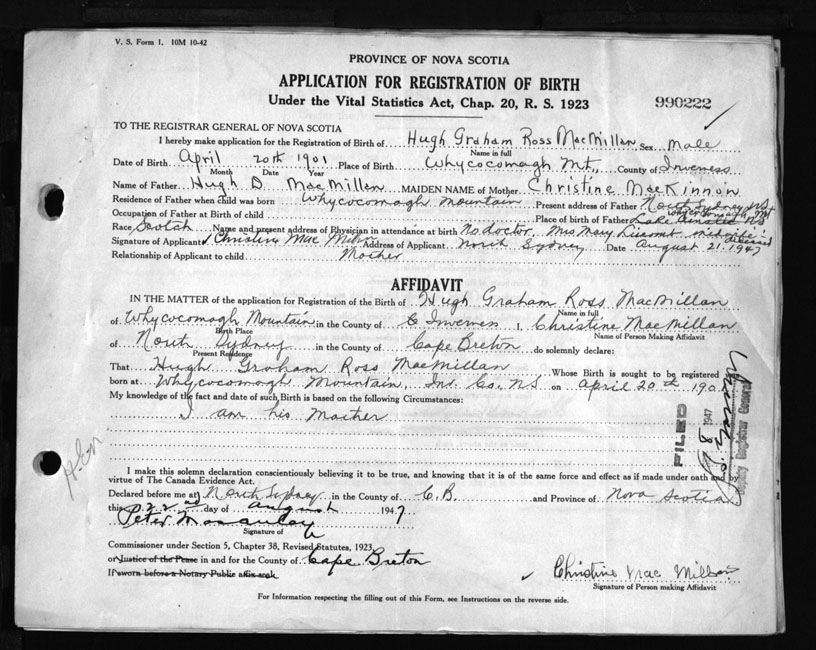 V. S. Form 1. 10M 10-42
PROVINCE OF NOVA SCOTIA
APPLICATION FOR REGISTRATION OF BIRTH
Under the Vital Statistics Act, Chap. 20, R. S. 1923
990222
TO THE REGISTRAR GENERAL OF NOVA SCOTIA
I hereby make application for the Registration of Birth of Hugh Graham Ross MacMillan Sex Male
Name in full
Date of Birth April 20th 1901 Place of Birth Whycocomagh Mt., County of Inverness
Month Date Year
Name of Father Hugh D. MacMillan MAIDEN NAME of Mother Christine MacKinnon
Residence of Father when child was born Whycocomagh Mountain Present address of Father North Sydney NS
Whycocomagh Mt
Occupation of Father at Birth of child Place of birth of Father Lake Ainslie NS
Race, Scotch Name and present address of Physician in attendance at birth No doctor, Mrs Mary midwife deceased
Signature of Applicant Christine Mac Address of Applicant North Sydney Date August 21. 1947
Relationship of Applicant to child Mother
AFFIDAVIT
IN THE MATTER of the application for Registration of the Birth of Hugh Graham Ross MacMillan
Name in full
of Whycocomagh Mountain in the County of Inverness I, Christine MacMillan
Birth Place Name of Person Making Affidavit
of North Sydney in the County of Cape Breton do solemnly declare:
Present Residence
That Hugh Graham Ross MacMillan Whose Birth is sought to be registered
born at Whycocomagh Mountain, Inv. Co. NS on April 20th 190
My knowledge of the fact and date of such Birth is based on the following Circumstances:
I am his Mother
FILED
8 1947
Deputy Registrar General
I make this solemn declaration conscientiously believing it to be true, and knowing that it is of the same force and effect as if made under oath and by
virtue of The Canada Evidence Act.
Declared before me at North Sydney in the County of C. B. and Province of Nova Scotia
this 22nd day of August 1947
Peter Macaulay
Signature of
Commissioner under Section 5, Chapter 38, Revised Statutes, 1923
or Justice of the Peace in and for the County of Cape Breton
If sworn before a Notary Public affix seal
Christine Mac Millan
Signature of Person making Affidavit
For Information respecting the filling out of this Form, see Instructions on the reverse side.